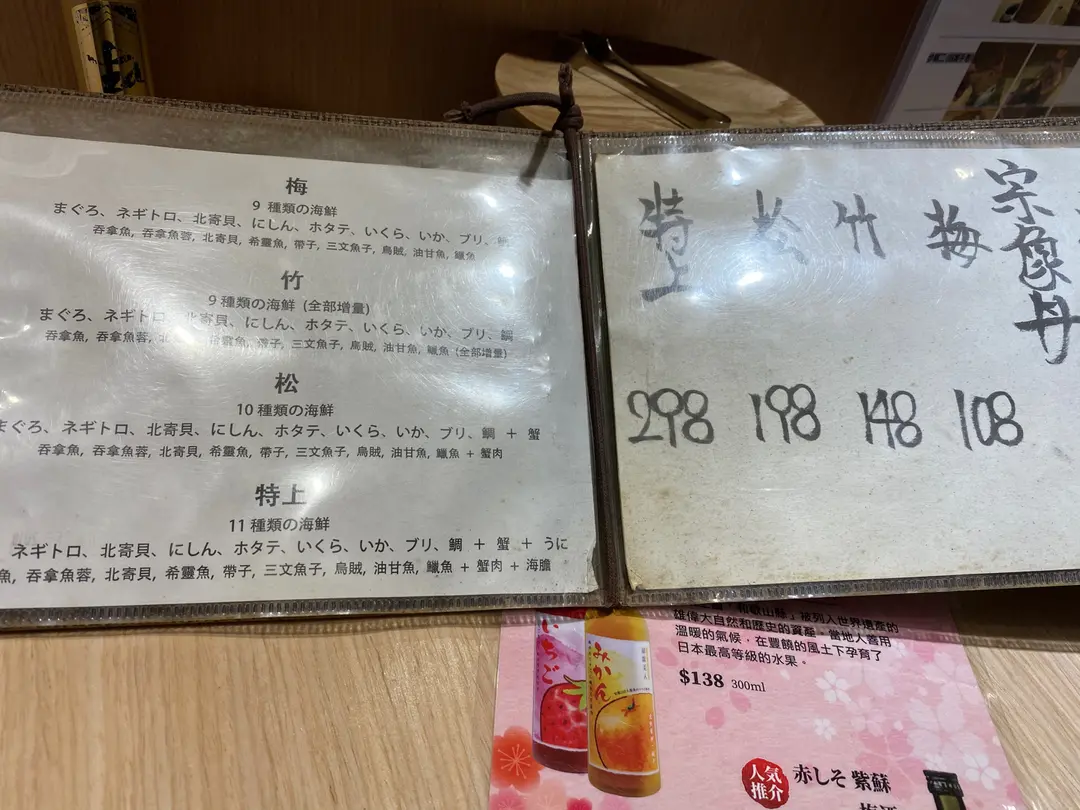 梅
9 種類の海鮮
まぐろ、ネギトロ、北寄貝、にしん、ホタテ、いくら、いか、ブリ、鯛
吞拿魚, 吞拿魚蓉, 北寄貝, 希靈魚, 帶子, 三文魚子, 烏賊, 油甘魚, 鱲魚
竹
9種類の海鮮 (全部增量)
まぐろ、ネギトロ、北寄貝、にしん、ホタテ、いくら、いか、ブリ、鯛
吞拿魚, 吞拿魚蓉, 希靈魚, 帶子, 三文魚子, 烏賊, 油甘魚, 鱲魚 (全部增量)
松
10 種類の海鮮
まぐろ、ネギトロ、北寄貝、にしん、ホタテ、いくら、いか、ブリ、鯛 + 蟹
吞拿魚, 吞拿魚蓉, 北寄貝, 希靈魚, 帶子, 三文魚子, 烏賊, 油甘魚, 鱲魚 + 蟹肉
特上
11 種類の海鮮
ネギトロ、北寄貝、にしん、ホタテ、いくら、いか、ブリ、鯛 + 蟹 + うに
魚, 吞拿魚蓉, 北寄貝, 希靈魚, 帶子, 三文魚子, 烏賊, 油甘魚, 鱲魚 + 蟹肉 + 海膽
宗像丼
梅 108
竹 148
松 198
特上 298
いちご
みかん
「和歌山縣」被列入世界遺產的
雄偉大自然和歷史的資產，當地人善用
溫暖的氣候，在豐饒的風土下孕育了
日本最高等級的水果。
$138 300ml
人気
推介
赤しそ 紫蘇
梅酒